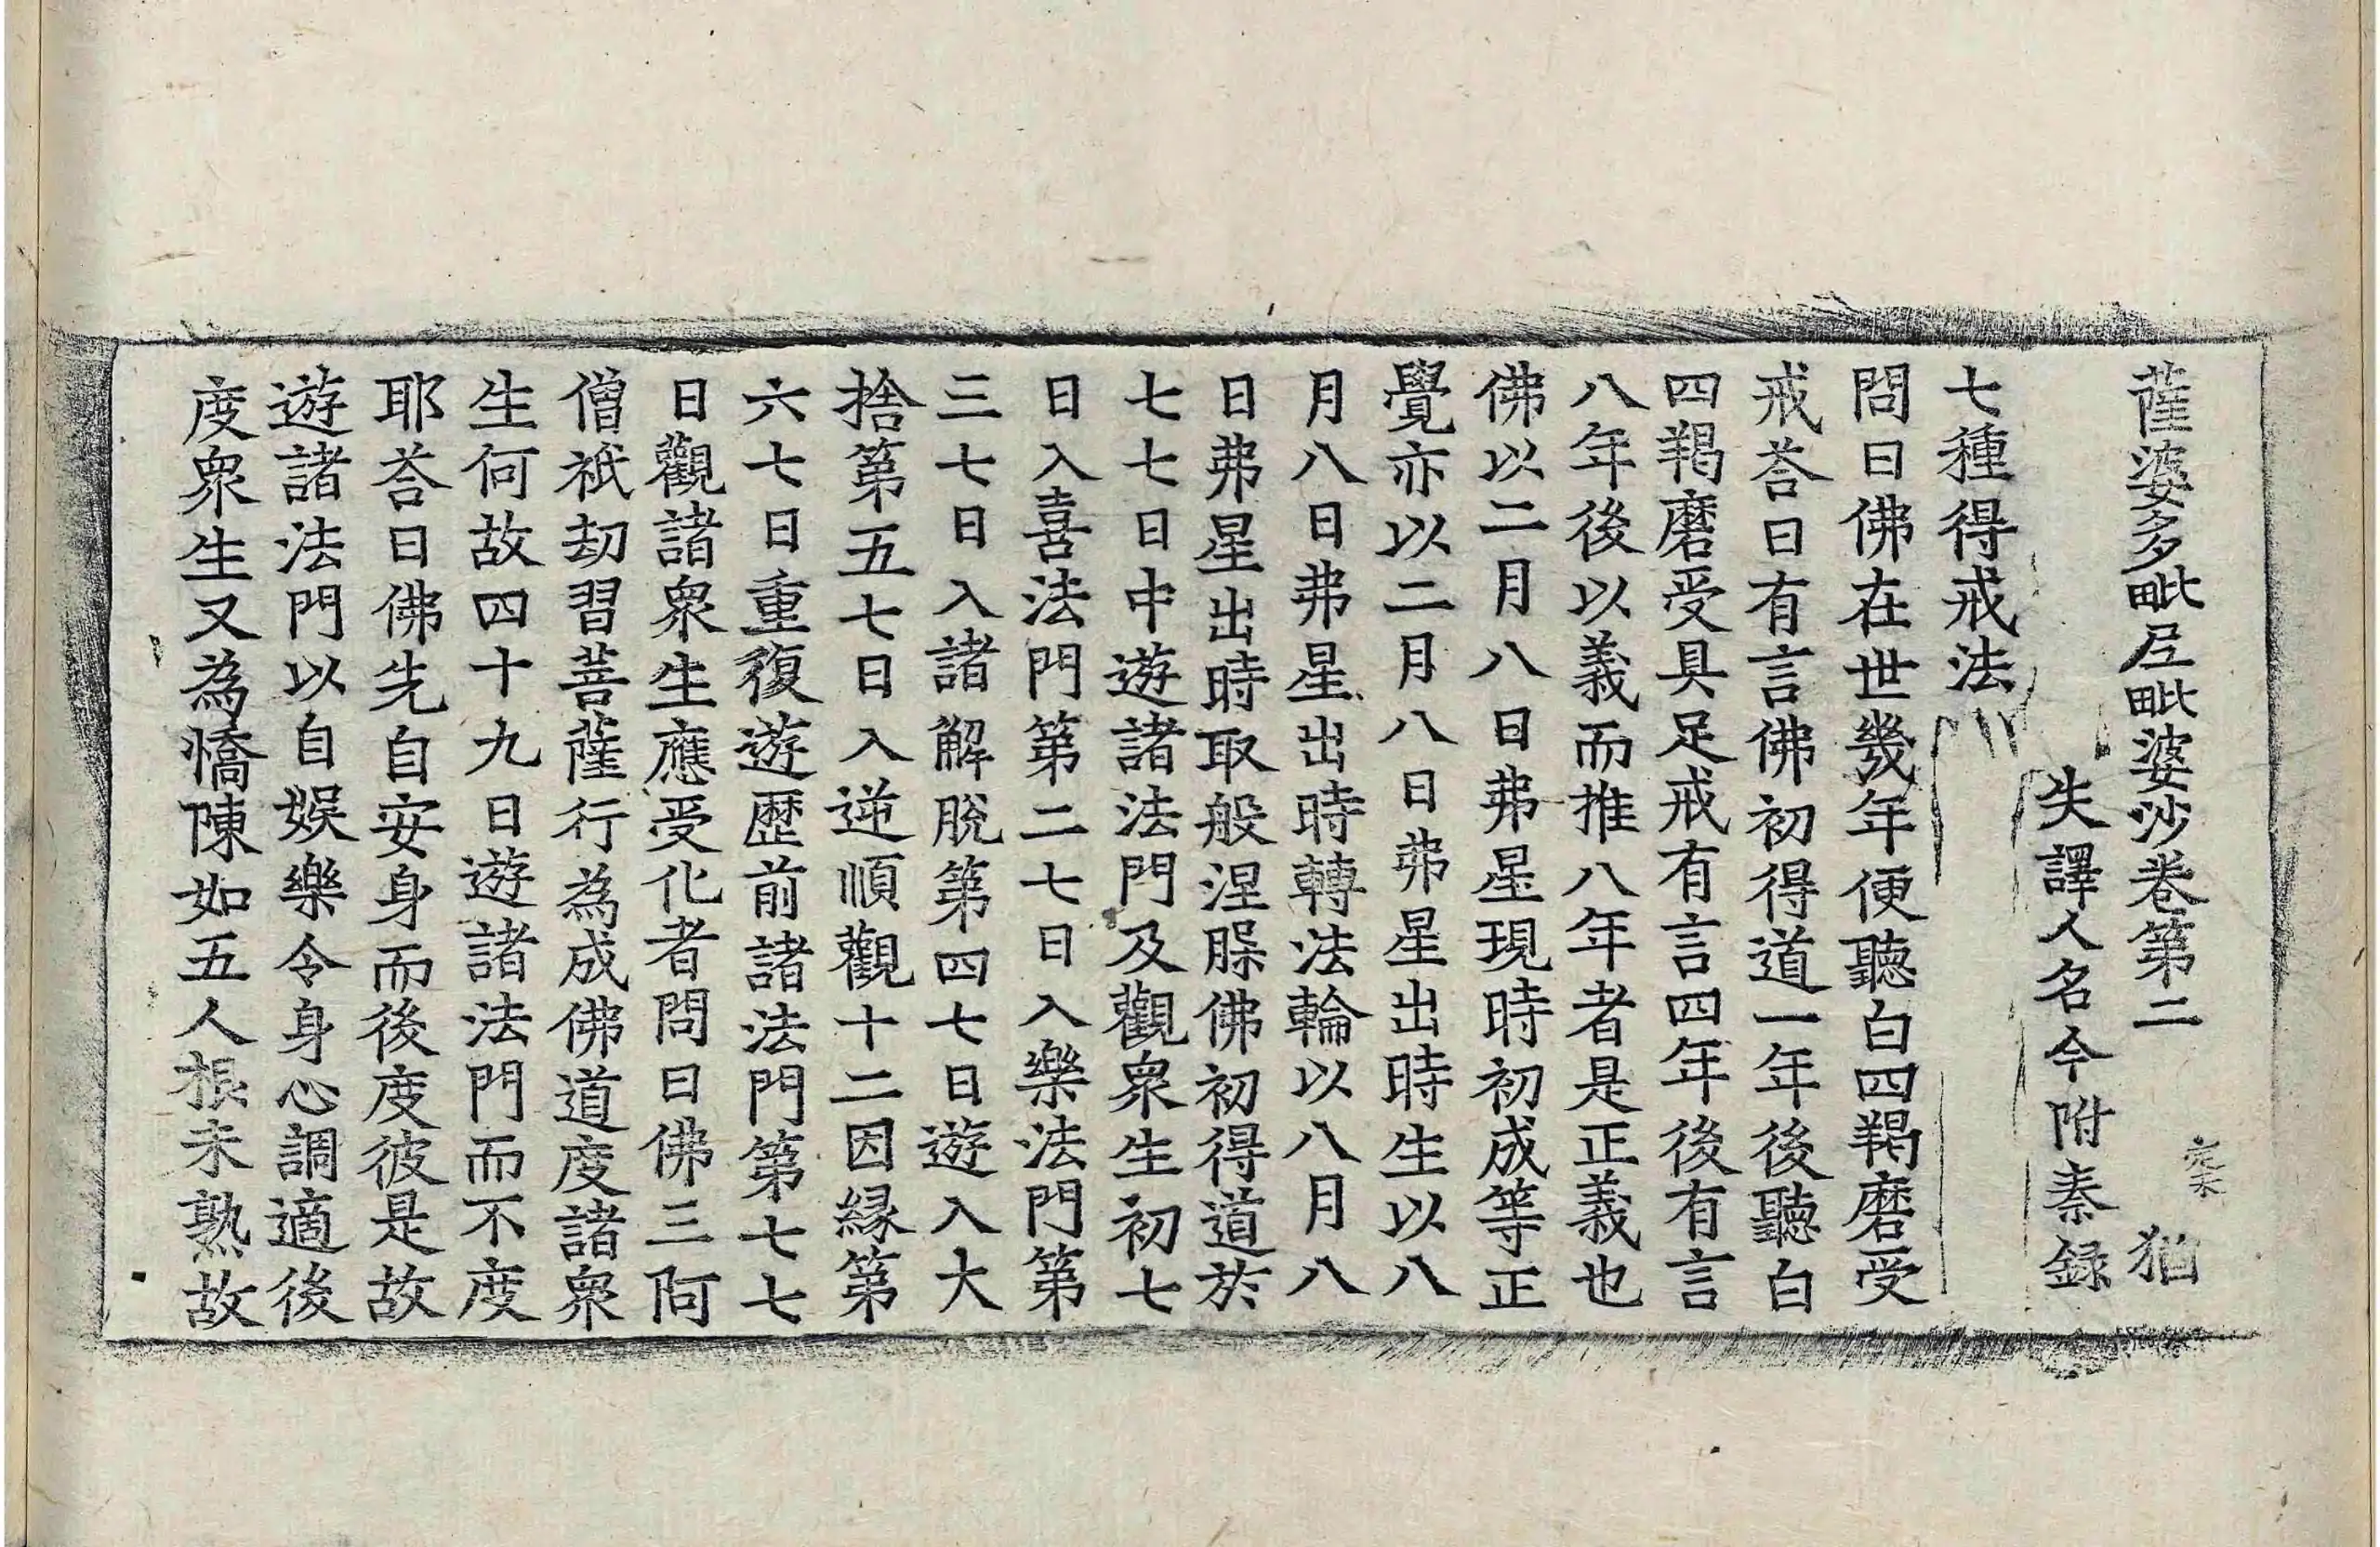 薩婆多毗尼毗婆沙卷第二 猶
失譯人名今附秦録
七種得戒法
問曰佛在世幾年便聽白四羯磨受
戒荅曰有言佛初得道一年後聽白
四羯磨受具足戒有言四年後有言
八年後以義而推八年者是正義也
佛以二月八日弗星現時初成等正
覺亦以二月八日弗星出時生以八
月八日弗星出時轉法輪以八月八
日弗星出時取般涅槃佛初得道於
七七日中遊諸法門及觀衆生初七
日入喜法門第二七日入樂法門第
三七日入諸解脫第四七日遊入大
捨第五七日入逆順觀十二因緣第
六七日重復遊歷前諸法門第七七
日觀諸衆生應受化者問曰佛三阿
僧祇劫習菩薩行為成佛道度諸衆
生何故四十九日遊諸法門而不度
耶荅曰佛先自安身而後度彼是故
遊諸法門以自娛樂令身心調適後
度衆生又為憍陳如五人根未熟故